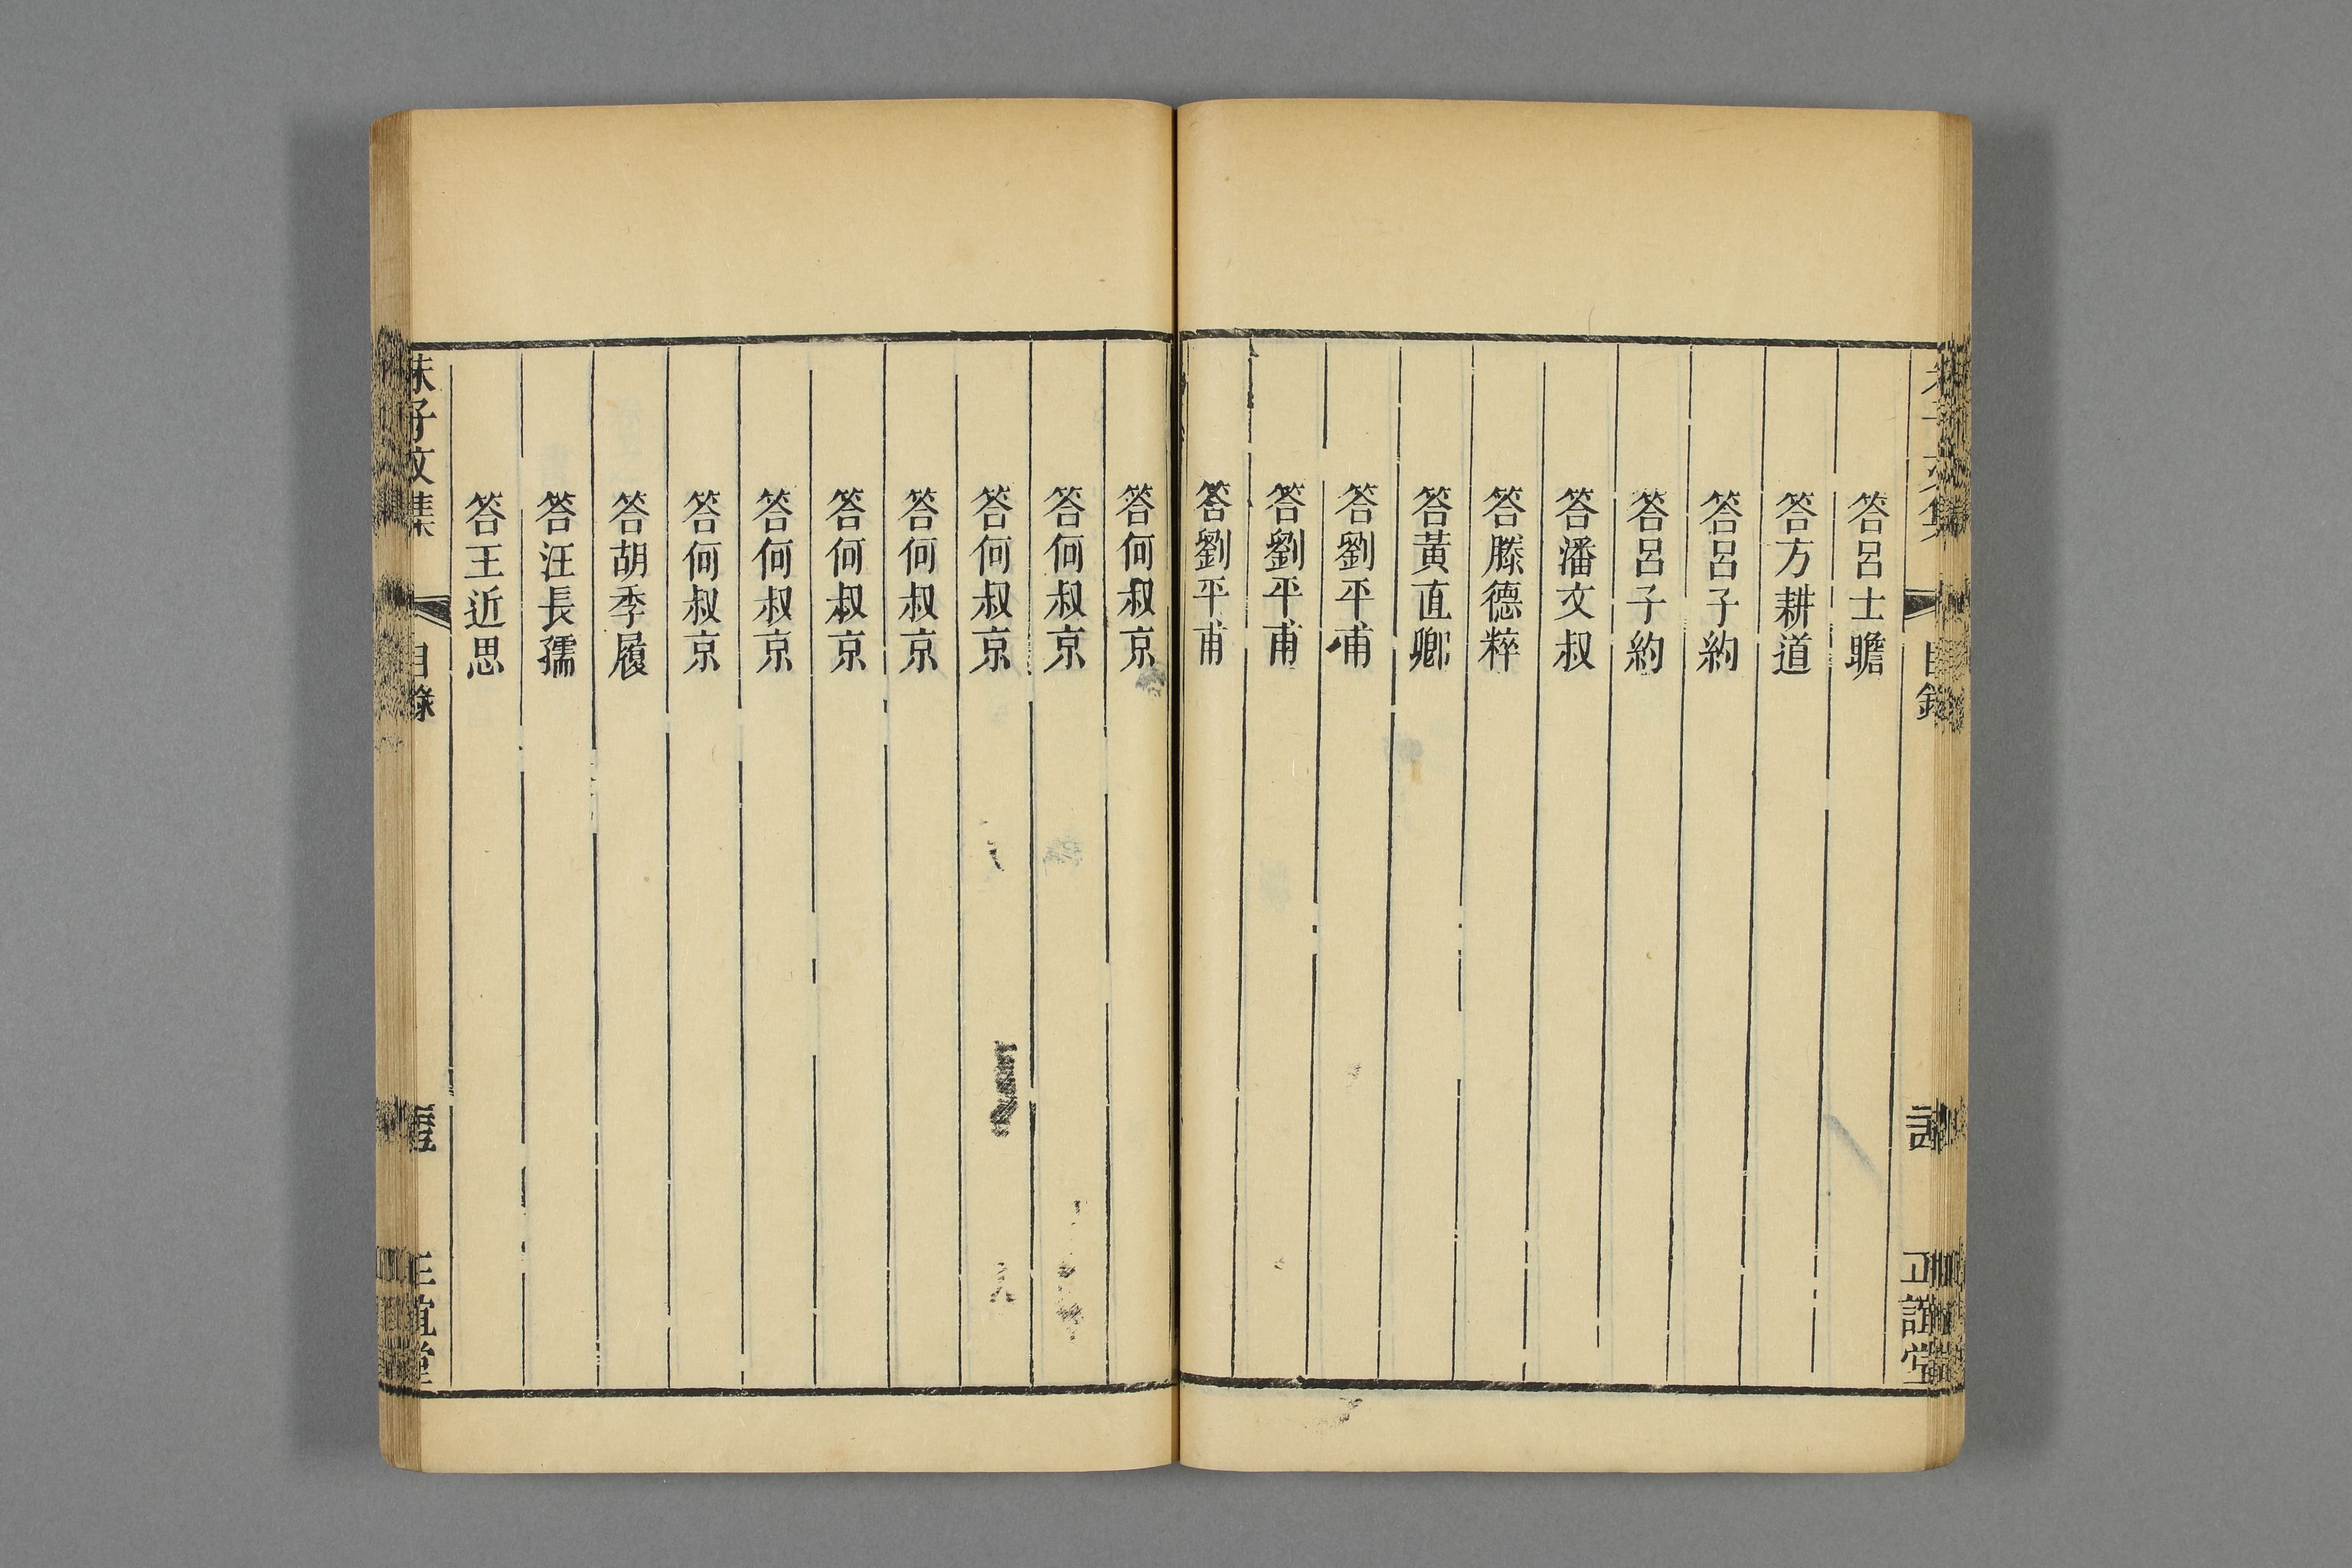 答呂士瞻
答方耕道
答呂子約
答呂子約
答潘文叔
答滕德粹
答黃直卿
答劉平甫
答劉平甫
答劉平甫
答何叔京
答何叔京
答何叔京
答何叔京
答何叔京
答何叔京
答何叔京
答胡季履
答汪長孺
答王近思
朱子文集
目錄